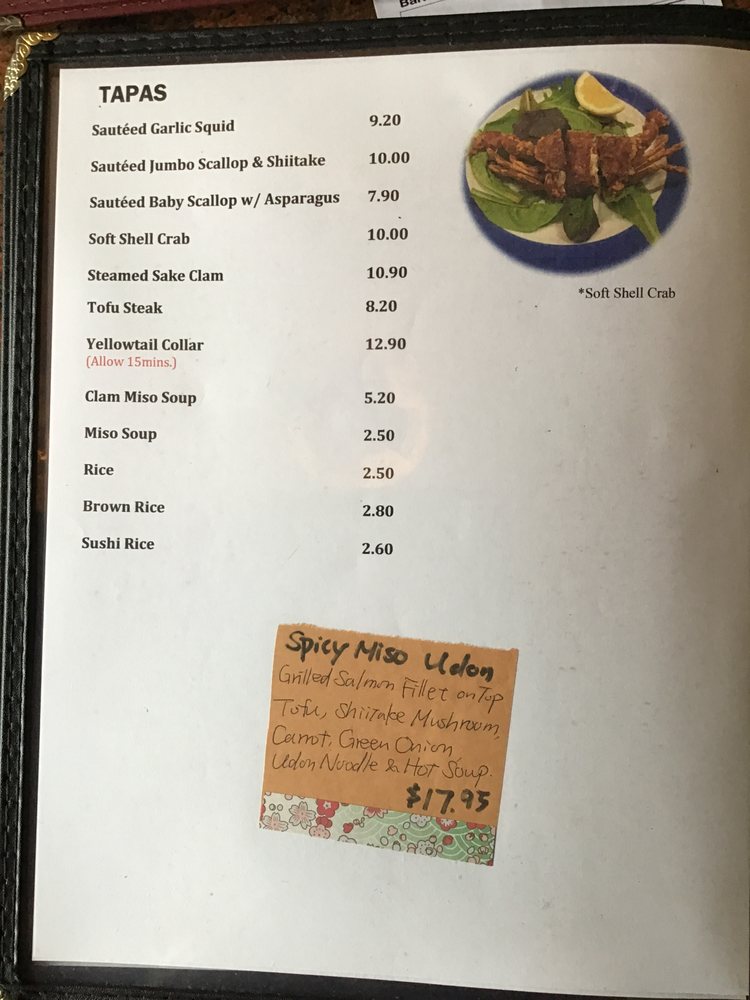 TAPAS
Sautéed Garlic Squid 9.20
Sautéed Jumbo Scallop & Shiitake 10.00
Sautéed Baby Scallop w/ Asparagus 7.90
Soft Shell Crab 10.00
Steamed Sake Clam 10.90
Tofu Steak 8.20
Yellowtail Collar 12.90
(Allow 15mins.)
Clam Miso Soup 5.20
Miso Soup 2.50
Rice 2.50
Brown Rice 2.80
Sushi Rice 2.60
*Soft Shell Crab
Spicy Miso Udon
Grilled Salmon Fillet on Top
Tofu, Shiitake Mushroom,
Carrot, Green Onion,
Udon Noodle & Hot Soup.
$17.95